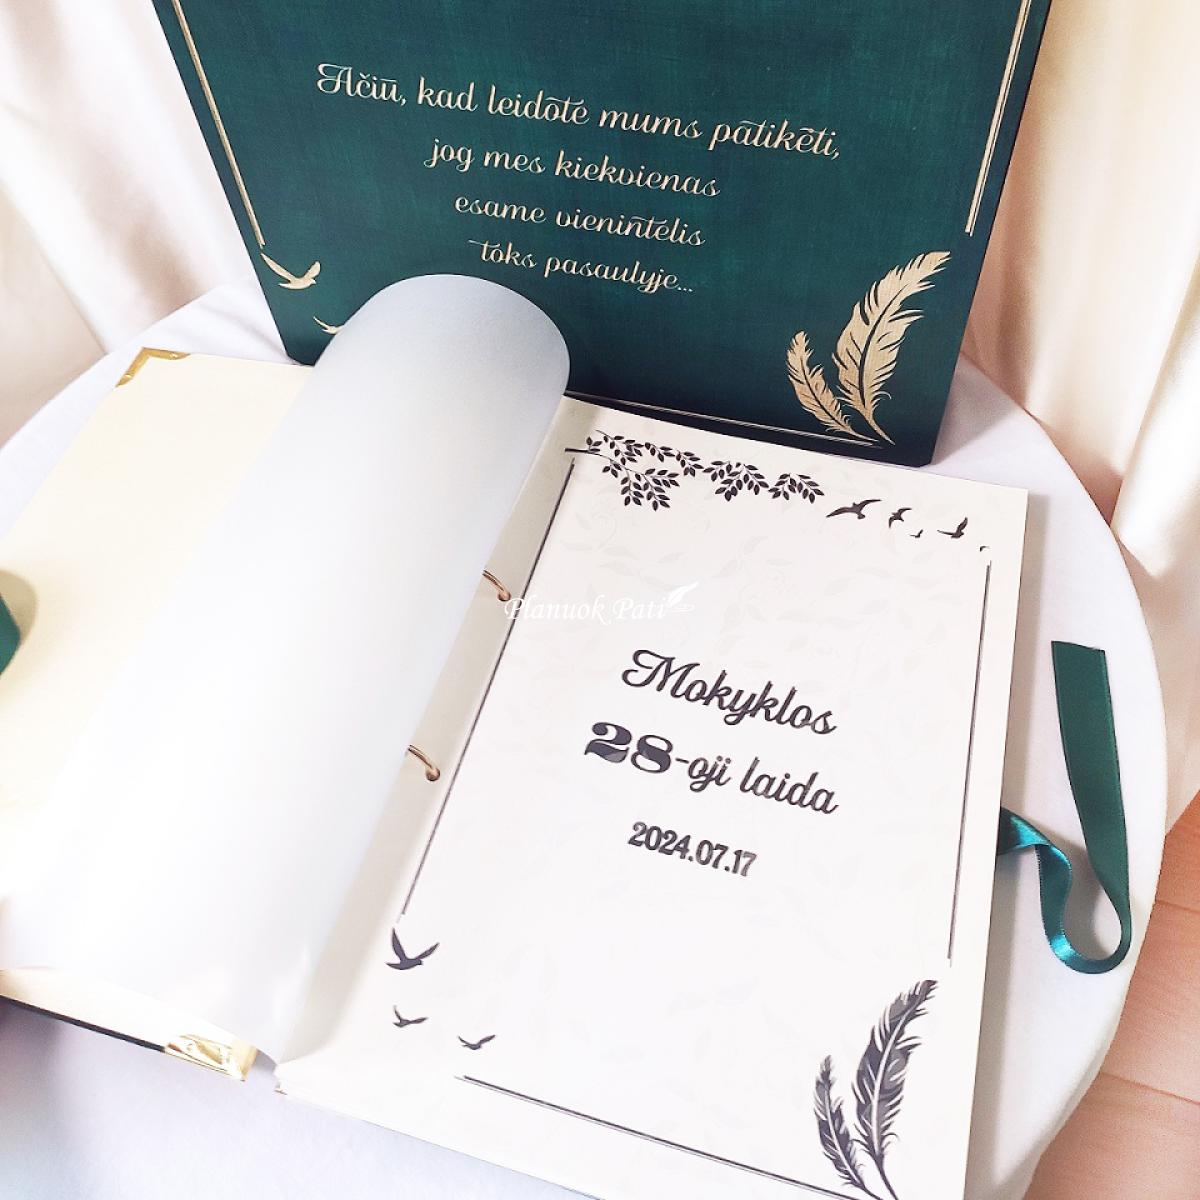 Ačiū, kad leidote mums patikėti,
jog mes kiekvienas
esame vienintelis
toks pasaulyje...
Planuok Pati
Mokyklos
28-oji laida
2024.07.17